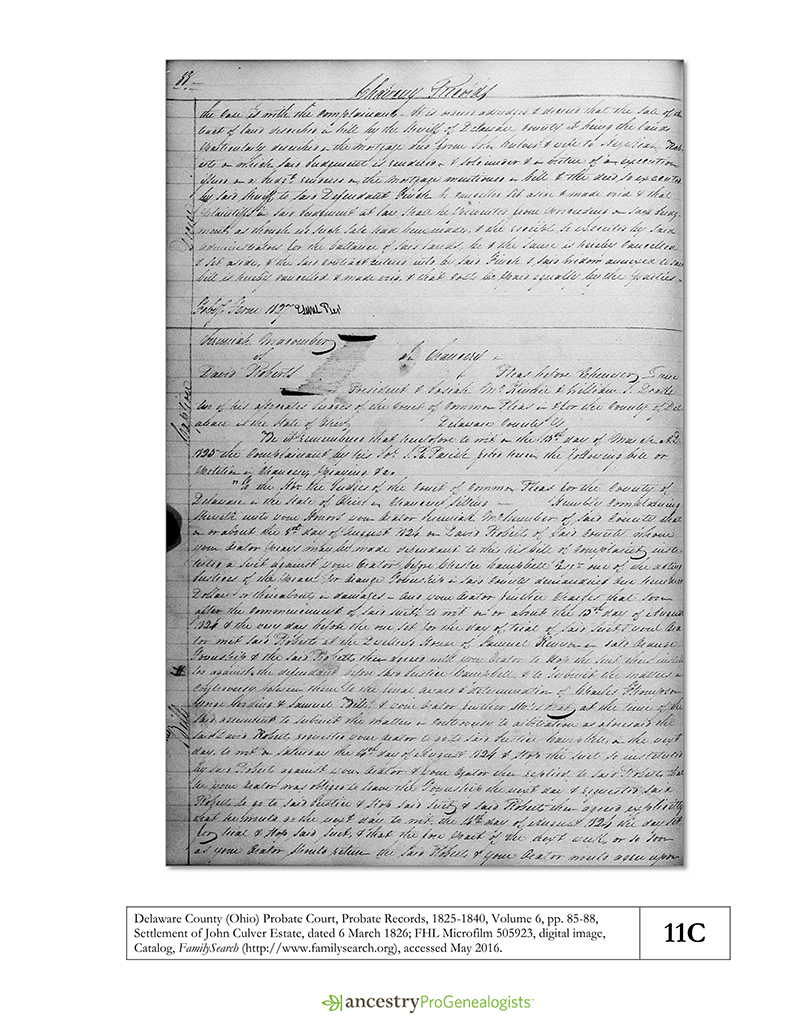 88
Chancery Records
the Case is with the Complainant - It is ordered adjudged & decreed that the Sale of the
tract of land described in bill by the Sheriff of Delaware County it being the lands
Particularly described in the mortgage deed from John
on which said Judgment is rendered & sold under & in virtue of an execution
issued on a Judgt. on the mortgage mentioned in bill & the deed so executed
by said Sheriff to said Defendant Finch be cancelled set aside & made void & that
Plaintiffs in said Judgment at law shall be from proceeding on said Judg-
ment as though no such sale had been made. & the so executed by said
administrators for the ballance of said lands be & the same is hereby cancelled
& set aside, & the said contract entered into by said Finch & said annexed to said
bill is hereby cancelled & made void, & that costs be paid equally by the parties -
Decree
Jeremiah Macomber
vs In Chancery -
David Roberts Pleas before Ebenezer
President & Josiah McKinnie & William
of his associates Judges of the Court of Common Pleas in & for the County of Del-
aware in the State of Ohio Delaware County
Caption
Be it remembered that heretofore to wit on the 15th day of March A.D.
1825 the Complainant by his Sol. Parish filed herein the following bill or
Petition in Chancery
"To the Hon. the Judges of the Court of Common Pleas for the County of
Delaware in the State of Ohio in Chancery Sitting - Humbly Complaining
Sheweth unto your Honors your Orator Jeremiah McCumber of said County that
on or about the 5th day of August 1824 David Roberts of said County whom
your Orator prays may be made defendant to this his bill of Complaint, insti-
tuted a Suit against your Orator before Chester Campbell Esqr one of the acting
Justices of the Peace for Orange Township in said County demanding one hundred
Dollars or thereabouts in damages - And your Orator further charges that soon
after the commencement of said suit, to wit on or about the 13th day of August
1824 & the very day before the one set for the day of trial of said suit, your Ora-
tor met said Roberts at the Dwelling House of Samuel in said Orange
Township & the said Roberts then agreed with your Orator to stop the suit thus institu-
ted against the defendant before said Justice Campbell, & to submit the matters in
controversy between them to the final award & determination of Charles Thompson
George & Samuel & your Orator further states that at the time of the
said agreement to submit the matters in controversy to arbitration as aforesaid the
said David Roberts requested your Orator to go to said Justice Campbell on the next
day, to wit on Saturday the 14th day of August 1824 & stop the suit so instituted
by said Roberts against your Orator & your Orator then replied to said Roberts that
he your Orator was obliged to leave the Township the next day & requested said
Roberts to go to said Justice & stop said suit, & said Roberts then agreed explicitly
that he would on the next day to wit, the 14th day of August 1824 the day set
for trial & stop said suit, & that the fore part of the next week or so soon
as your Orator should return the said Roberts & your Orator would agree upon
Bill
Delaware County (Ohio) Probate Court, Probate Records, 1825-1840, Volume 6, pp. 85-88,
Settlement of John Culver Estate, dated 6 March 1826; FHL Microfilm 505923, digital image,
Catalog, FamilySearch (http://www.familysearch.org), accessed May 2016.
11C
ancestryProGenealogists